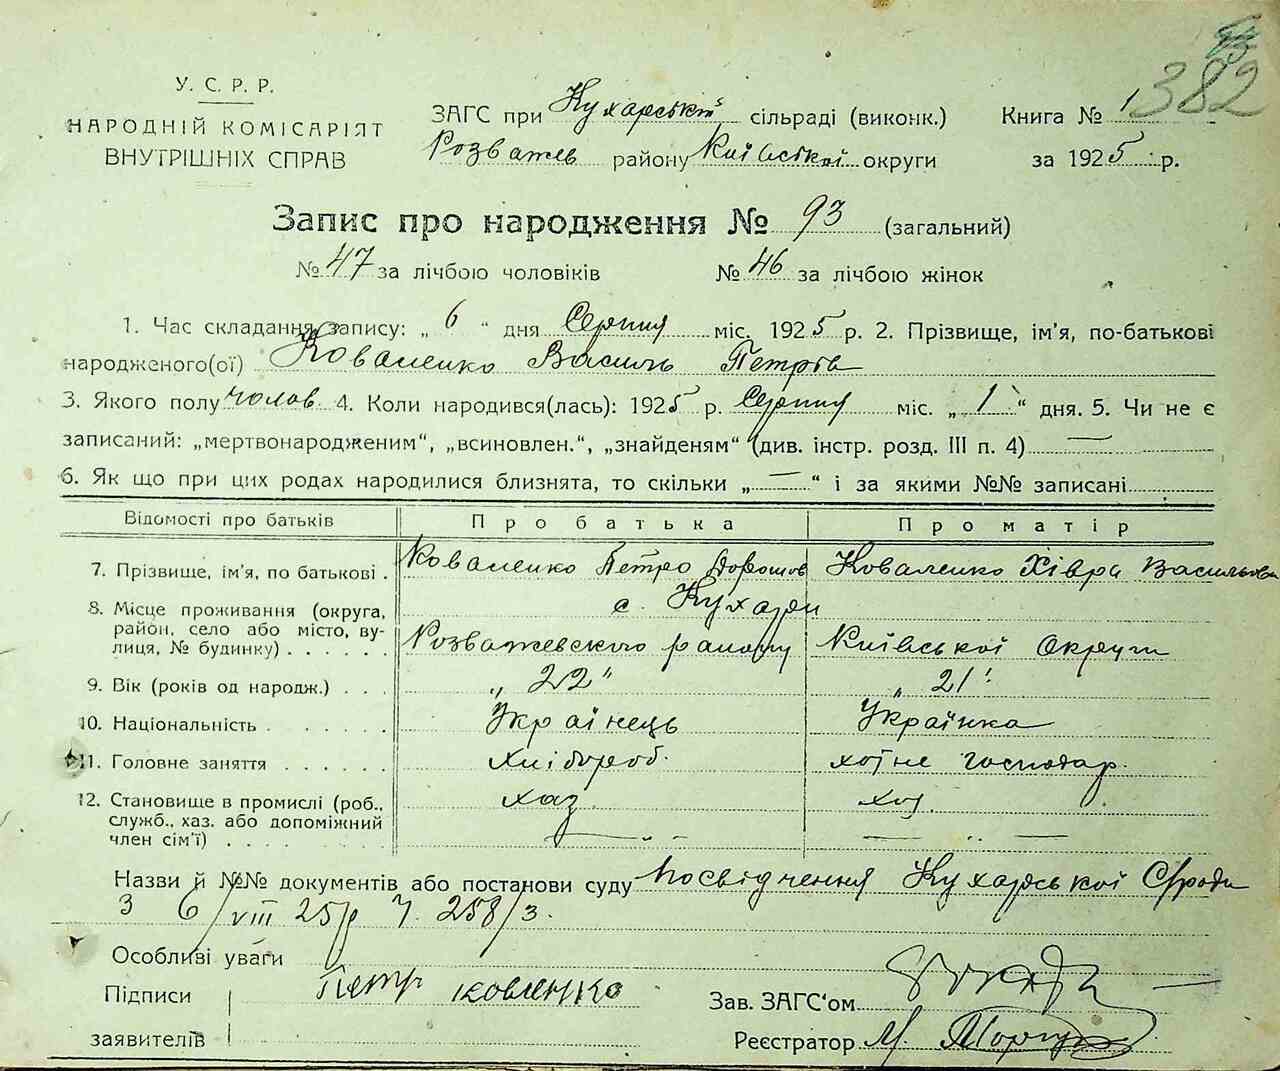 382
У. С. Р. Р.
НАРОДНІЙ КОМІСАРІЯТ
ВНУТРІШНІХ СПРАВ
ЗАГС при Кухарській сільраді (виконк.) Книга № 1
Розважев району Київської округи за 1925 р.
Запис про народження № 93 (загальний)
№ 47 за лічбою чоловіків № 46 за лічбою жінок
1. Час складання запису: „ 6 “ дня Серпня міс. 1925 р. 2. Прізвище, ім'я, по-батькові
народженого(ої) Коваленко Василь Петров
3. Якого полу чолов 4. Коли народився(лась): 1925 р. Серпня міс. „ 1 “ дня. 5. Чи не є
записаний: „мертвонародженим“, „всиновлен.“, „знайденям“ (див. інстр. розд. III п. 4) —
6. Як що при цих родах народилися близнята, то скільки „ — “ і за якими №№ записані
Відомості про батьків Про батька Про матір
7. Прізвище, ім'я, по батькові . Коваленко Петро Дорошов Коваленко Хівря Васильова
8. Місце проживання (округа, с. Кухари
район, село або місто, ву-
лиця, № будинку) . . . . . . Розважевского району Київської Округи
9. Вік (років од народж.) . . . „ 22 “ „ 21 “
10. Національність . . . . . . . Українець Українка
11. Головне заняття . . . . . . хлібороб. хотнє господар.
12. Становище в промислі (роб., хаз. хоз.
служб., хаз. або допоміжний
член сім'ї) . . . . . . . . — „ — — „ —
Назви й №№ документів або постанови суду Посвідчення Кухарської С/ради
з 6/VIII 25 р Ч. 258/з.
Особливі уваги
Підписи Петр ковленко Зав. ЗАГС'ом
заявителів Реєстратор М.